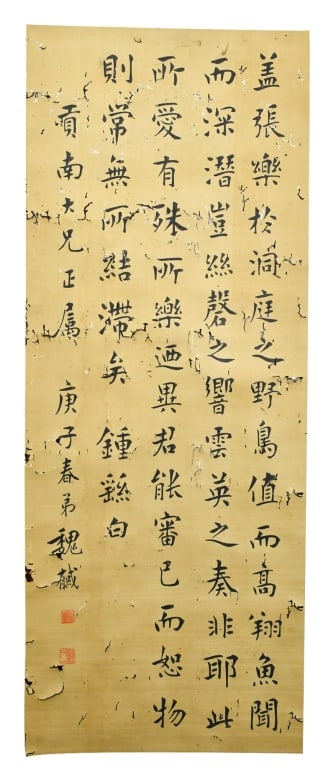 盖張樂於洞庭之野鳥值而高翔魚聞
而深潛豈絲磬之響雲英之奏非耶此
所愛有殊所樂迺異君能審己而恕物
則常無所結滯矣 鍾繇白
貢南大兄正屬 庚子春弟魏戫